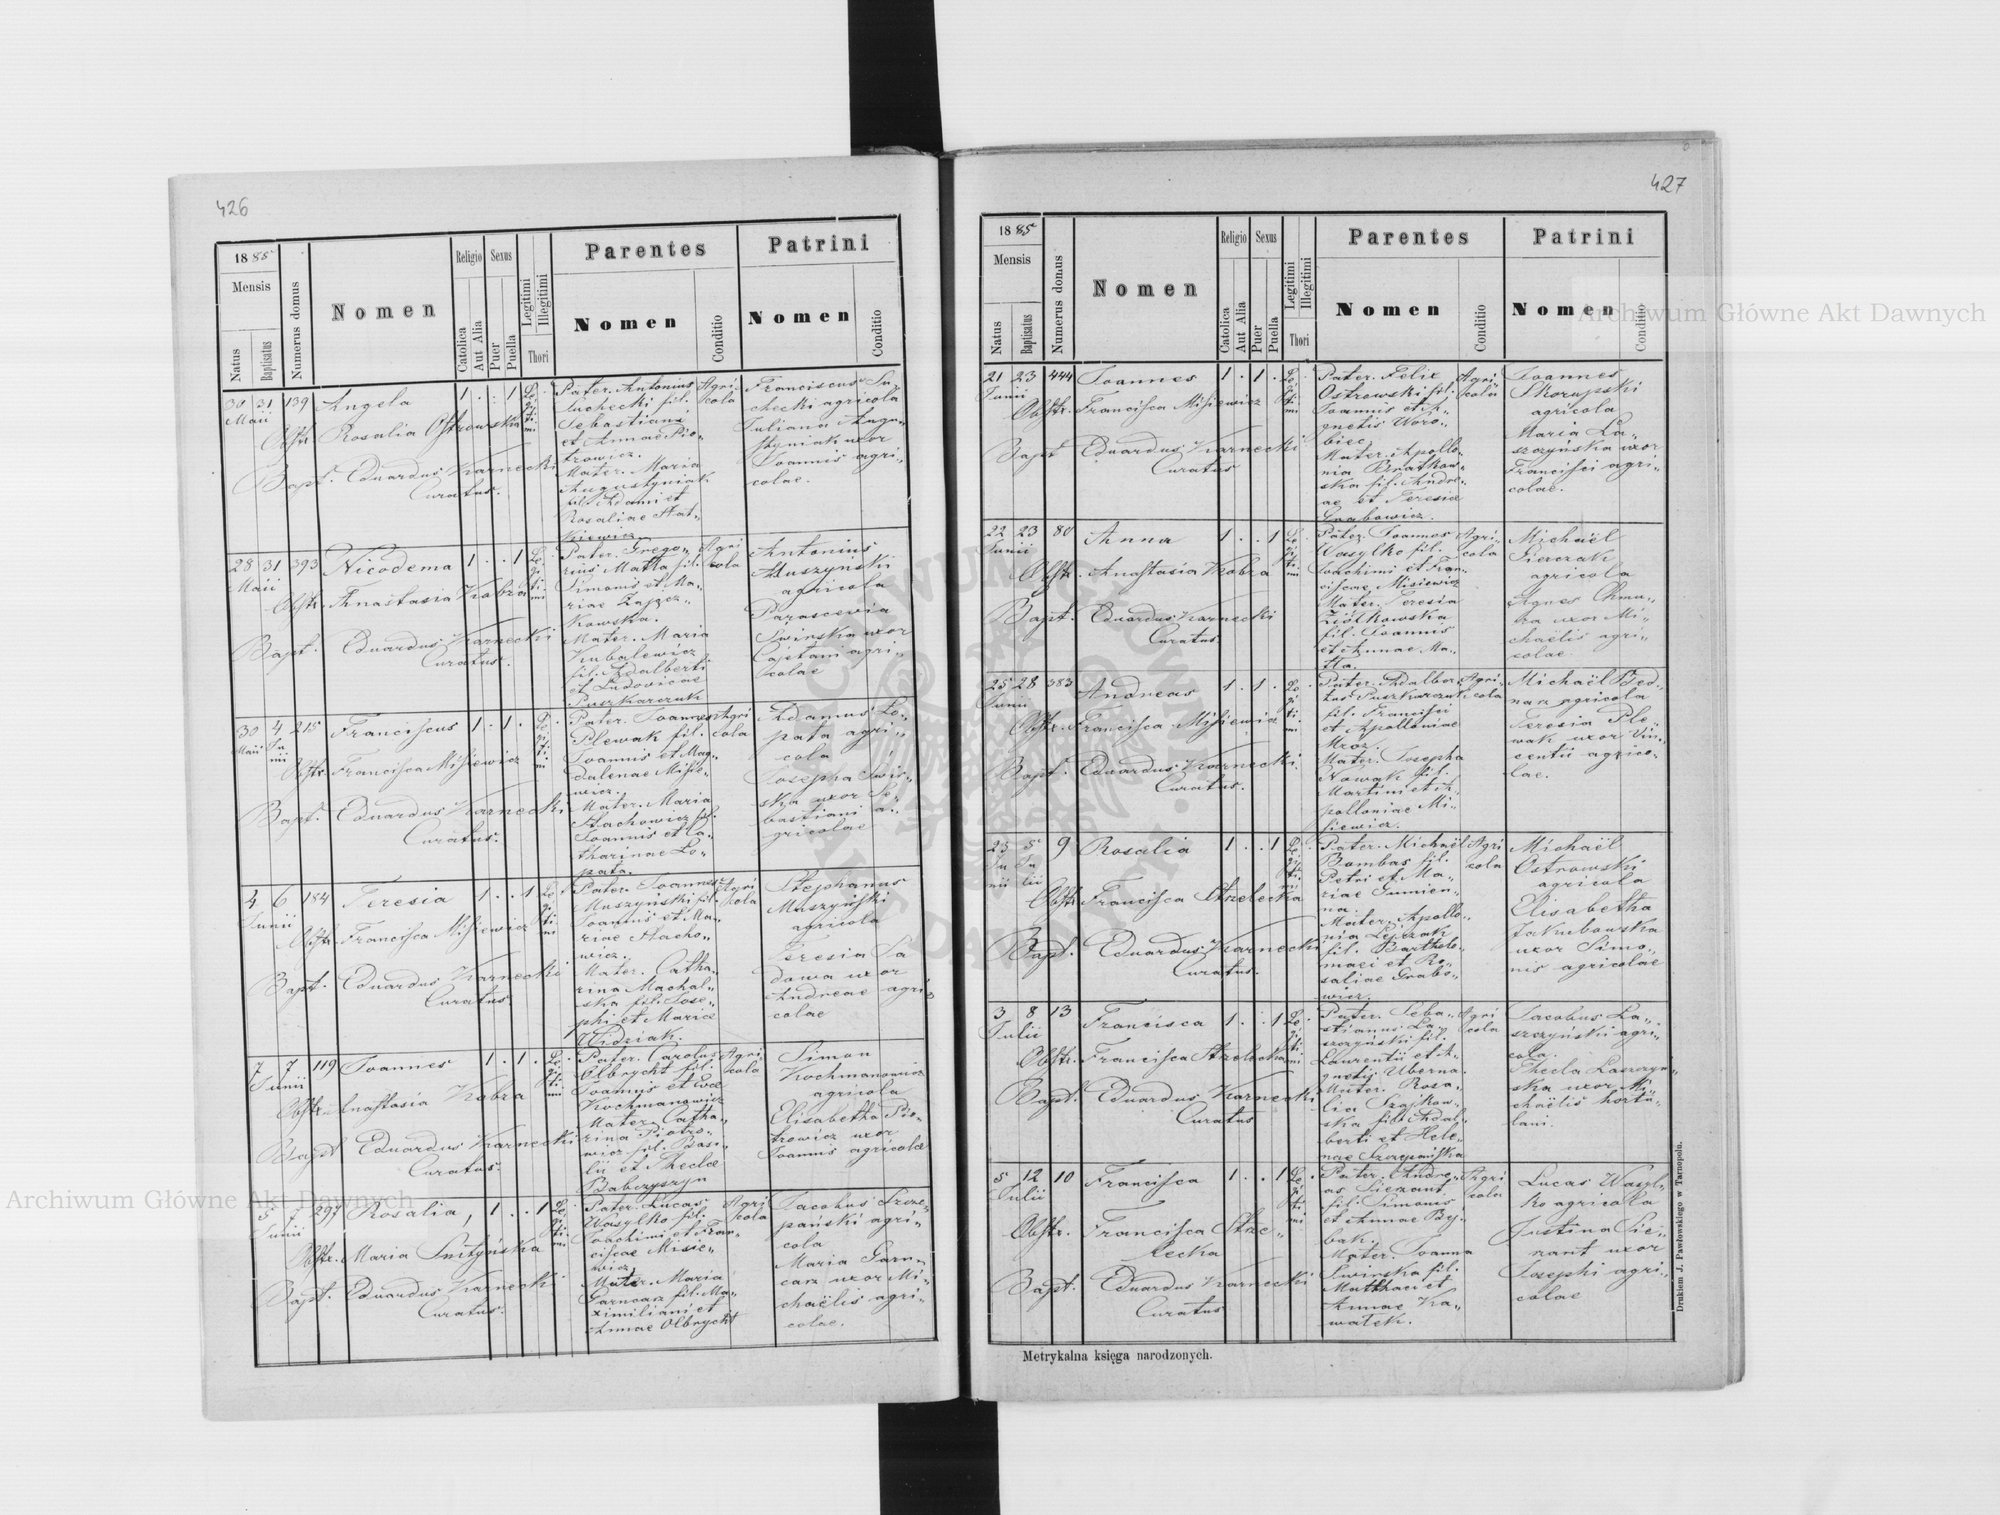 426
1885
Mensis
Natus
Baptisatus
Numerus domus
Nomen
Religio
Catolica
Aut Alia
Sexus
Puer
Puella
Legitimi
Illegitimi
Thori
Parentes
Nomen
Conditio
Patrini
Nomen
Conditio
30 31 139 Angela 1 . . 1
Maii
Obstr. Rosalia Ostrowska
Bapt. Eduardus Karnecki
Curatus.
Legitimi
Pater. Antonius
Suchecki fil.
Sebastiani
et Annae Pio„
trowicz.
Mater. Maria
Augustyniak
fil. Adami et
Rosaliae Hat„
kiewicz
Agri
cola
Franciscus Su„
checki agricola
Juliana Augu„
styniak uxor
Joannis agri„
colae.
28 31 393 Nicodema 1 . . 1
Maii
Obstr. Anastasia Kobza
Bapt. Eduardus Karnecki
Curatus.
Legitimi
Pater. Grego„
rius Matla fil.
Simonis et Ma„
riae
kowska.
Mater. Maria
Kubalewicz
fil. Adalberti
et Ludovicae
Puszkarczuk
Agri
cola
Antonius
Muszynski
agricola
Parascevia
Swirska uxor
Cajetani agri„
colae
30 4 215 Franciscus 1 . 1 .
Maii Ju
nii
Obstr. Francisca Misiewicz
Bapt. Eduardus Karnecki
Curatus.
Legitimi
Pater. Joannes
Plewak fil.
Joannis et Mag„
dalenae Misie„
wicz.
Mater. Maria
Stachowicz fil.
Joannis et Ca„
tharinae Lo„
pata.
Agri
cola
Adamus Lo„
pata agri„
cola
Josepha Swir„
ska uxor Se„
bastiani a„
gricolae
4 6 184 Teresia 1 . . 1
Junii
Obstr. Francisca Misiewicz
Bapt. Eduardus Karnecki
Curatus
Legitimi
Pater. Joannes
Muszynski fil.
Joannis et Ma„
riae Stacho„
wicz.
Mater. Catha„
rina Machal„
ska fil. Jose„
phi et Mariae
Widziak.
Agri
cola
Stephanus
Muszyński
agricola
Teresia Sa
dowa uxor
Andreae agri„
colae
7 7 119 Joannes 1 . 1 .
Junii
Obstr. Anastasia Kobza
Bapt Eduardus Karnecki
Curatus.
Legitimi
Pater. Carolus
Olbrycht fil.
Joannis et Evae
Kochmanowicz
Mater. Catha„
rina Piotro„
wicz fil. Basi„
lii et Theclae
Babczyszyn
Agri
cola
Simon
Kochmanowicz
agricola
Elisabetha Pio„
trowicz uxor
Joannis agricolae
5 7 297 Rosalia, 1 . . 1
Junii
Obstr. Maria
Bapt. Eduardus Karnecki
Curatus.
Legitimi
Pater. Lucas
Wasylko fil.
Joachimi et Fran„
ciscae Misie„
wicz,
Mater. Maria
Garncarz fil. Ma„
ximiliani et
Annae Olbrycht
Agri
cola
Jacobus Szcze„
pański agri„
cola
Maria Garn„
carz uxor Mi„
chaëlis agri„
colae.
427
1885
Mensis
Natus
Baptisatus
Numerus domus
Nomen
Religio
Catolica
Aut Alia
Sexus
Puer
Puella
Legitimi
Illegitimi
Thori
Parentes
Nomen
Conditio
Patrini
Nomen
Conditio
21 23 444 Joannes 1 . 1 .
Junii
Obstr. Francisca Misiewicz
Bapt Eduardus Karnecki
Curatus
Legitimi
Pater. Felix
Ostrowski fil.
Joannis et A„
gnetis Woro„
biec,
Mater. Apollo„
nia Bratkow„
ska fil. Andre„
ae et Teresiae
Grabowicz.
Agri
cola
Joannes
Skorupski
agricola
Maria La„
szczyńska uxor
Francisci agri„
colae.
22 23 80 Anna 1 . . 1
Junii
Obstr. Anastasia Kobza
Bapt. Eduardus Karnecki
Curatus
Legitimi
Pater. Joannes
Wasylko fil.
Joachimi et Fran„
ciscae Misiewicz
Mater. Teresia
Ziólkowska
fil. Joannis
et Annae Ma„
tla.
Agri„
cola
Michaël
Pieczak
agricola
Agnes Chmu„
ra uxor Mi„
chaëlis agri„
colae
25 28 383 Andreas 1 . 1 .
Junii
Obstr. Francisca Misiewicz
Bapt. Eduardus Karnecki.
Curatus.
Legitimi
Pater. Adalber„
tus Puszkarczuk
fil. Francisci
et Apolloniae
Mroz.
Mater. Josepha
Nowak fil.
Martini et A„
polloniae Mi„
siewicz.
Agri„
cola
Michaël Bed„
narz agricola
Teresia Ple„
wak uxor Vin„
centii agrico„
lae.
25 5 9 Rosalia 1 . . 1
Ju Ju
nii lii
Obstr. Francisca Strzelecka
Bapt. Eduardus Karnecki
Curatus.
Legitimi
Pater. Michaël
Bombas fil.
Petri et Ma„
riae Gumien„
na.
Mater. Apollo„
nia Lejczak
fil. Bartholo„
maei et Ro„
saliae Grabo„
wicz.
Agri
cola
Michaël
Ostrowski
agricola
Elisabetha
Jakubowska
uxor Simo„
nis agricolae
3 8 13 Francisca 1 . . 1
Julii
Obstr. Francisca Strzelecka
Bapt. Eduardus Karnecki
Curatus
Legitimi
Pater. Seba„
stianus La„
szczyński fil.
Laurentii et A„
gnetis Uberna.
Mater. Rosa„
lia Szajkow„
ska fil. Adal„
berti et Hele„
nae Szczepańska
Agri
cola
Jacobus La„
szczyński agri„
cola.
Thecla Laszczyn„
ska uxor Mi„
chaëlis hortu„
lani.
5 12 10 Francisca 1 . . 1
Julii
Obstr. Francisca Strze„
lecka
Bapt. Eduardus Karnecki
Curatus
Legitimi
Pater. Andre„
as Sierzant
fil. Simonis
et Annae Ry„
bak.
Mater. Joanna
Swirska fil.
Matthaei et
Annae Ka„
watek.
Agri
cola
Lucas Wasyl„
ko agricola
Justina Sie„
rzant uxor
Josephi agri„
colae
Metrykalna księga narodzonych.
Drukiem J. Pawłowskiego w Tarnopolu.
Archiwum Główne Akt Dawnych
Archiwum Główne Akt Dawnych
ARCHIWUM GŁÓWNE AKT DAWNYCH